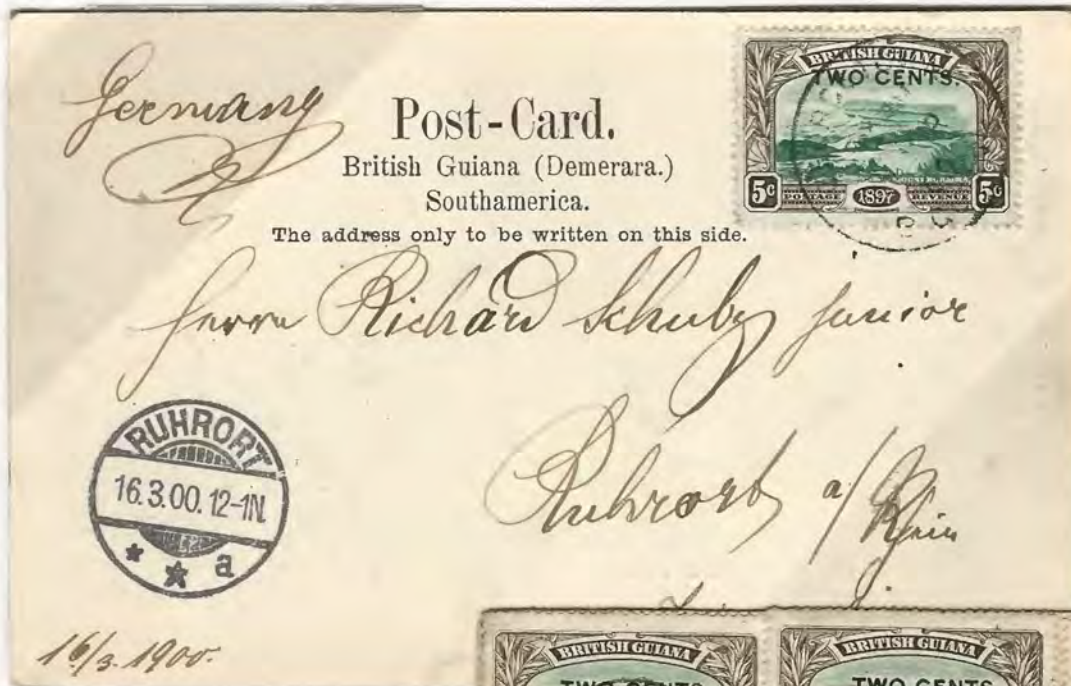 Germany
Post-Card.
British Guiana (Demerara.)
Southamerica.
The address only to be written on this side.
BRITISH GUIANA
TWO CENTS.
MOUNT RORAIMA
5c POSTAGE 1897 REVENUE 5c
Herrn Richard Schulz junior
Ruhrort a/Rhein
RUHRORT
16.3.00. 12-1N.
a
16/3. 1900.
BRITISH GUIANA
TWO CENTS.
BRITISH GUIANA
TWO CENTS.